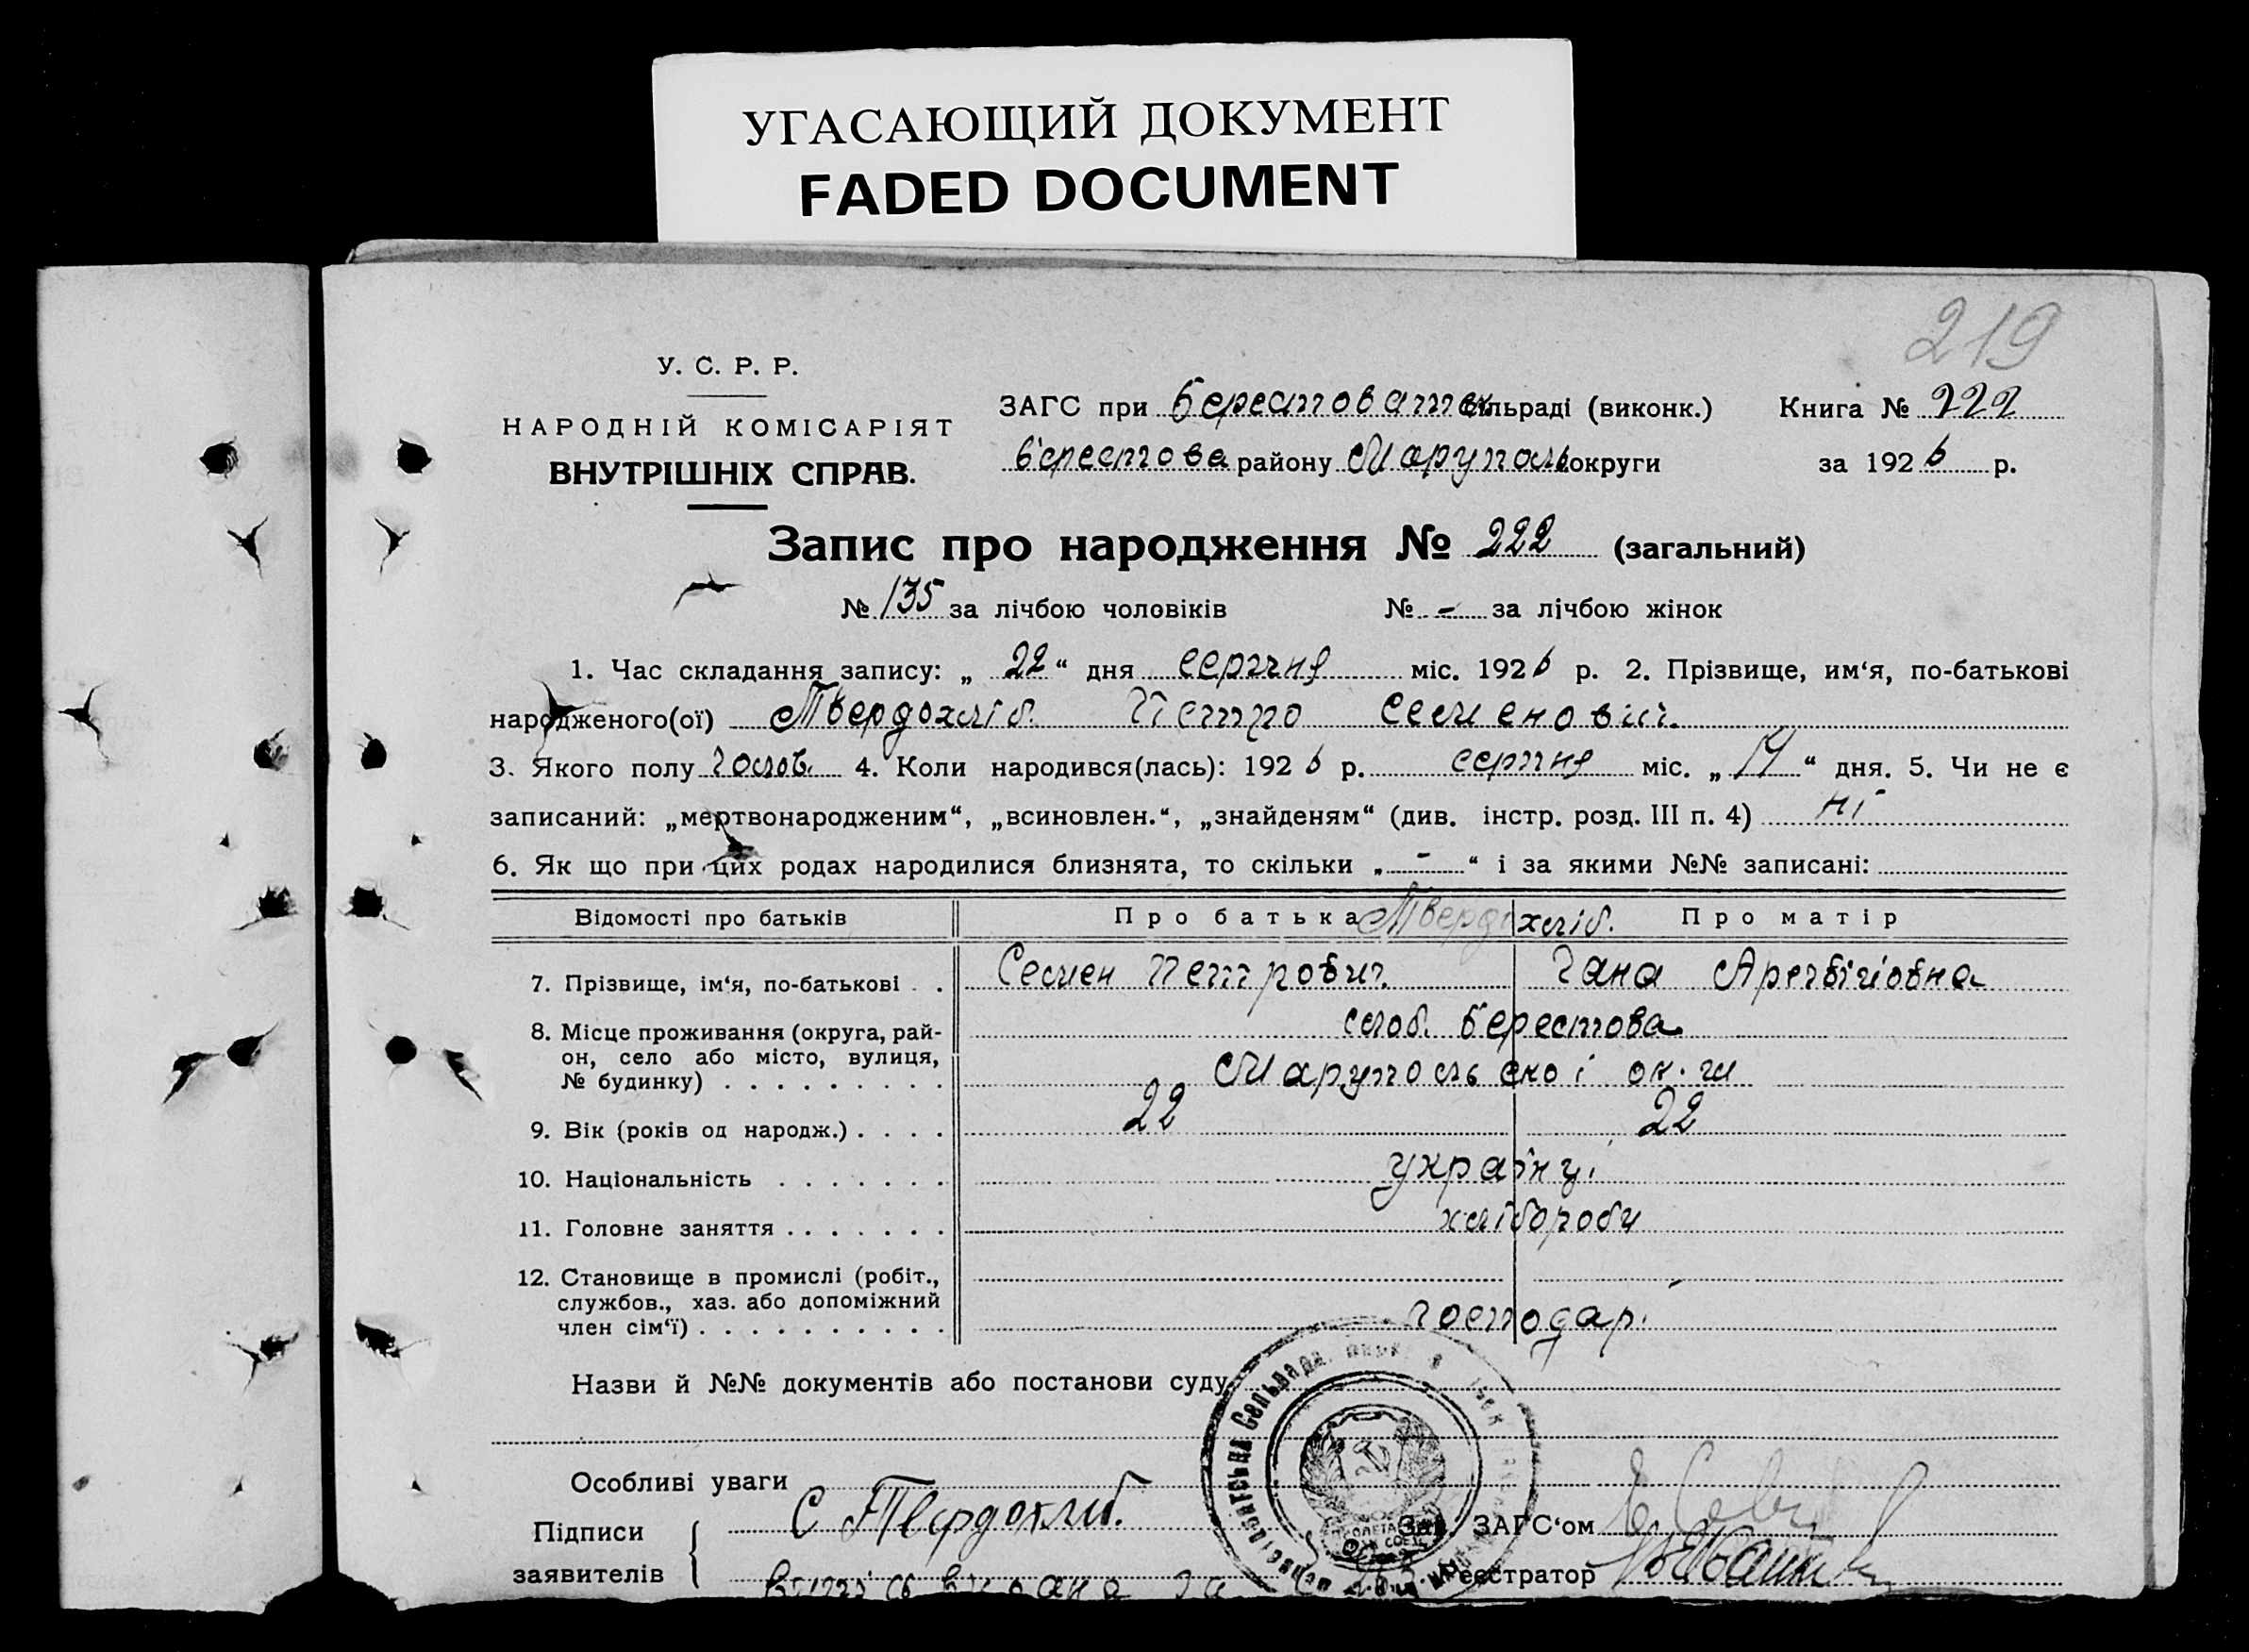 УГАСАЮЩИЙ ДОКУМЕНТ
FADED DOCUMENT
219
У. С. Р. Р.
НАРОДНІЙ КОМІСАРІЯТ
ВНУТРІШНІХ СПРАВ.
ЗАГС при Берестоватск сільраді (виконк.) Книга № 222
Берестова району Маруполь округи за 1926 р.
Запис про народження № 222 (загальний)
№ 135 за лічбою чоловіків № - за лічбою жінок
1. Час складання запису: „ 22 “ дня серпня міс. 1926 р. 2. Прізвище, им‘я, по-батькові
народженого(ої) Твердохліб Петро Семенович.
3. Якого полу чолов. 4. Коли народився(лась): 1926 р. серпня міс. „ 14 “ дня. 5. Чи не є
записаний: „мертвонародженим“, „всиновлен.“, „знайденям“ (див. інстр. розд. III п. 4) ні
6. Як що при цих родах народилися близнята, то скільки „ - “ і за якими №№ записані:
Відомості про батьків Про батька Твердохліб. Про матір
7. Прізвище, ім‘я, по-батькові . . Семен Петрович. Гана
8. Місце проживання (округа, рай-
он, село або місто, вулиця,
№ будинку) . . . . . . . . .
слоб. Берестова
Марупольскоі ок.
9. Вік (років од народж.) . . . . 22 22
10. Національність . . . . . . . українці
11. Головне заняття . . . . . . . хлібороби
12. Становище в промислі (робіт.,
службов., хаз. або допоміжний
член сім‘ї) . . . . . . . . . .
господар.
Назви й №№ документів або постанови суду
Особливі уваги
Підписи
заявителів
С Твердохлиб.
Зав. ЗАГС‘ом
Реєстратор